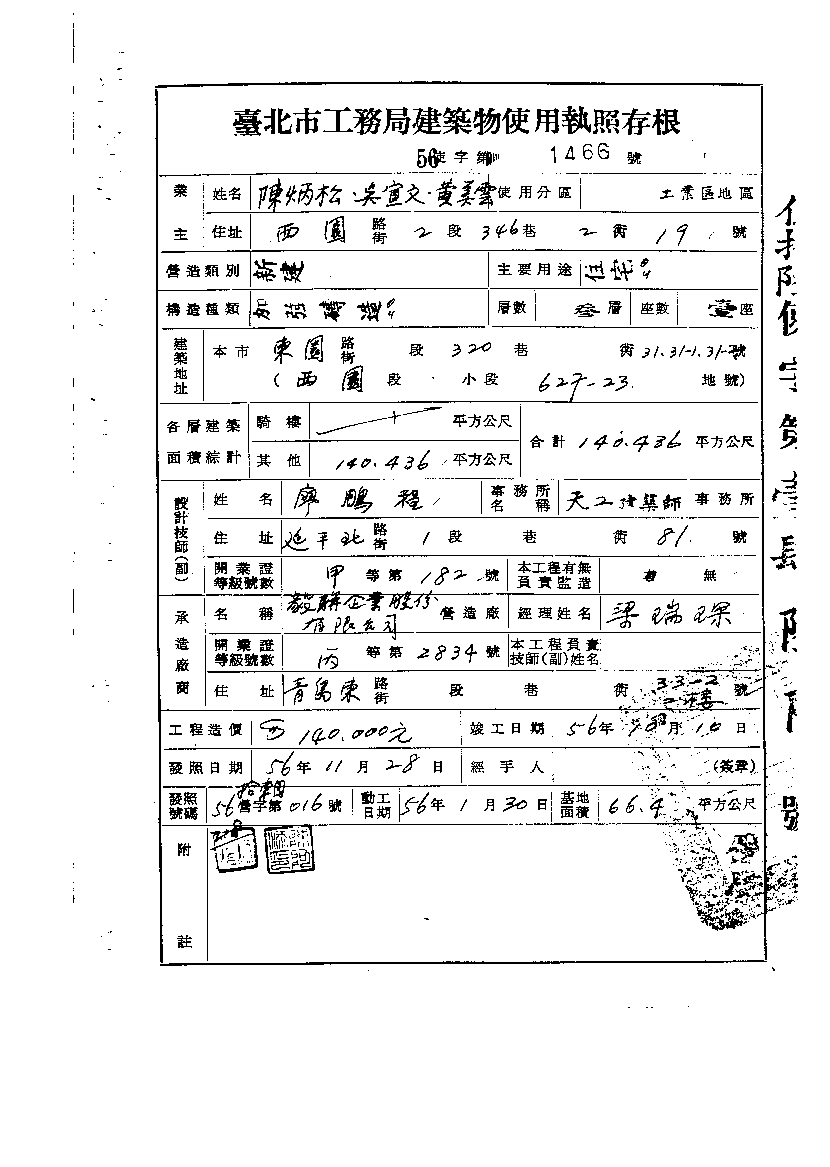 臺北市工務局建築物使用執照存根
56使字第 1466 號
業主 姓名 陳炳松·吳宣文·黃美雲 使用分區 工業區地區
住址 西園路街 2段 346巷 2衖 19號
營造類別 新建 主要用途 住宅
構造種類 加強磚造 層數 叁層 座數 壹座
建築地址 本市 東園路街 段 320巷 衖 31.31-1.31-2號
(西園段 小段 627-23 地號)
各層建築面積綜計 騎樓 平方公尺 合計 140.436 平方公尺
其他 140.436 平方公尺
設計技師(副) 姓名 廖鵬程 事務所名稱 天工建築師事務所
住址 延平北路街 1段 巷 衖 81號
開業證等級號數 甲等第182號 本工程有無負責監造 無
承造廠商 名稱 毅聯企業股份有限公司 營造廠 經理姓名 梁瑞琛
開業證等級號數 丙等第2834號 本工程負責技師(副)姓名
住址 青島東路街 段 巷 衖 33-2 二樓 號
工程造價 140.000元 竣工日期 56年 月10日
發照日期 56年11月28日 經手人 (簽章)
發照號碼 56營字第016號 動工日期 56年1月30日 基地面積 66.4 平方公尺
附註